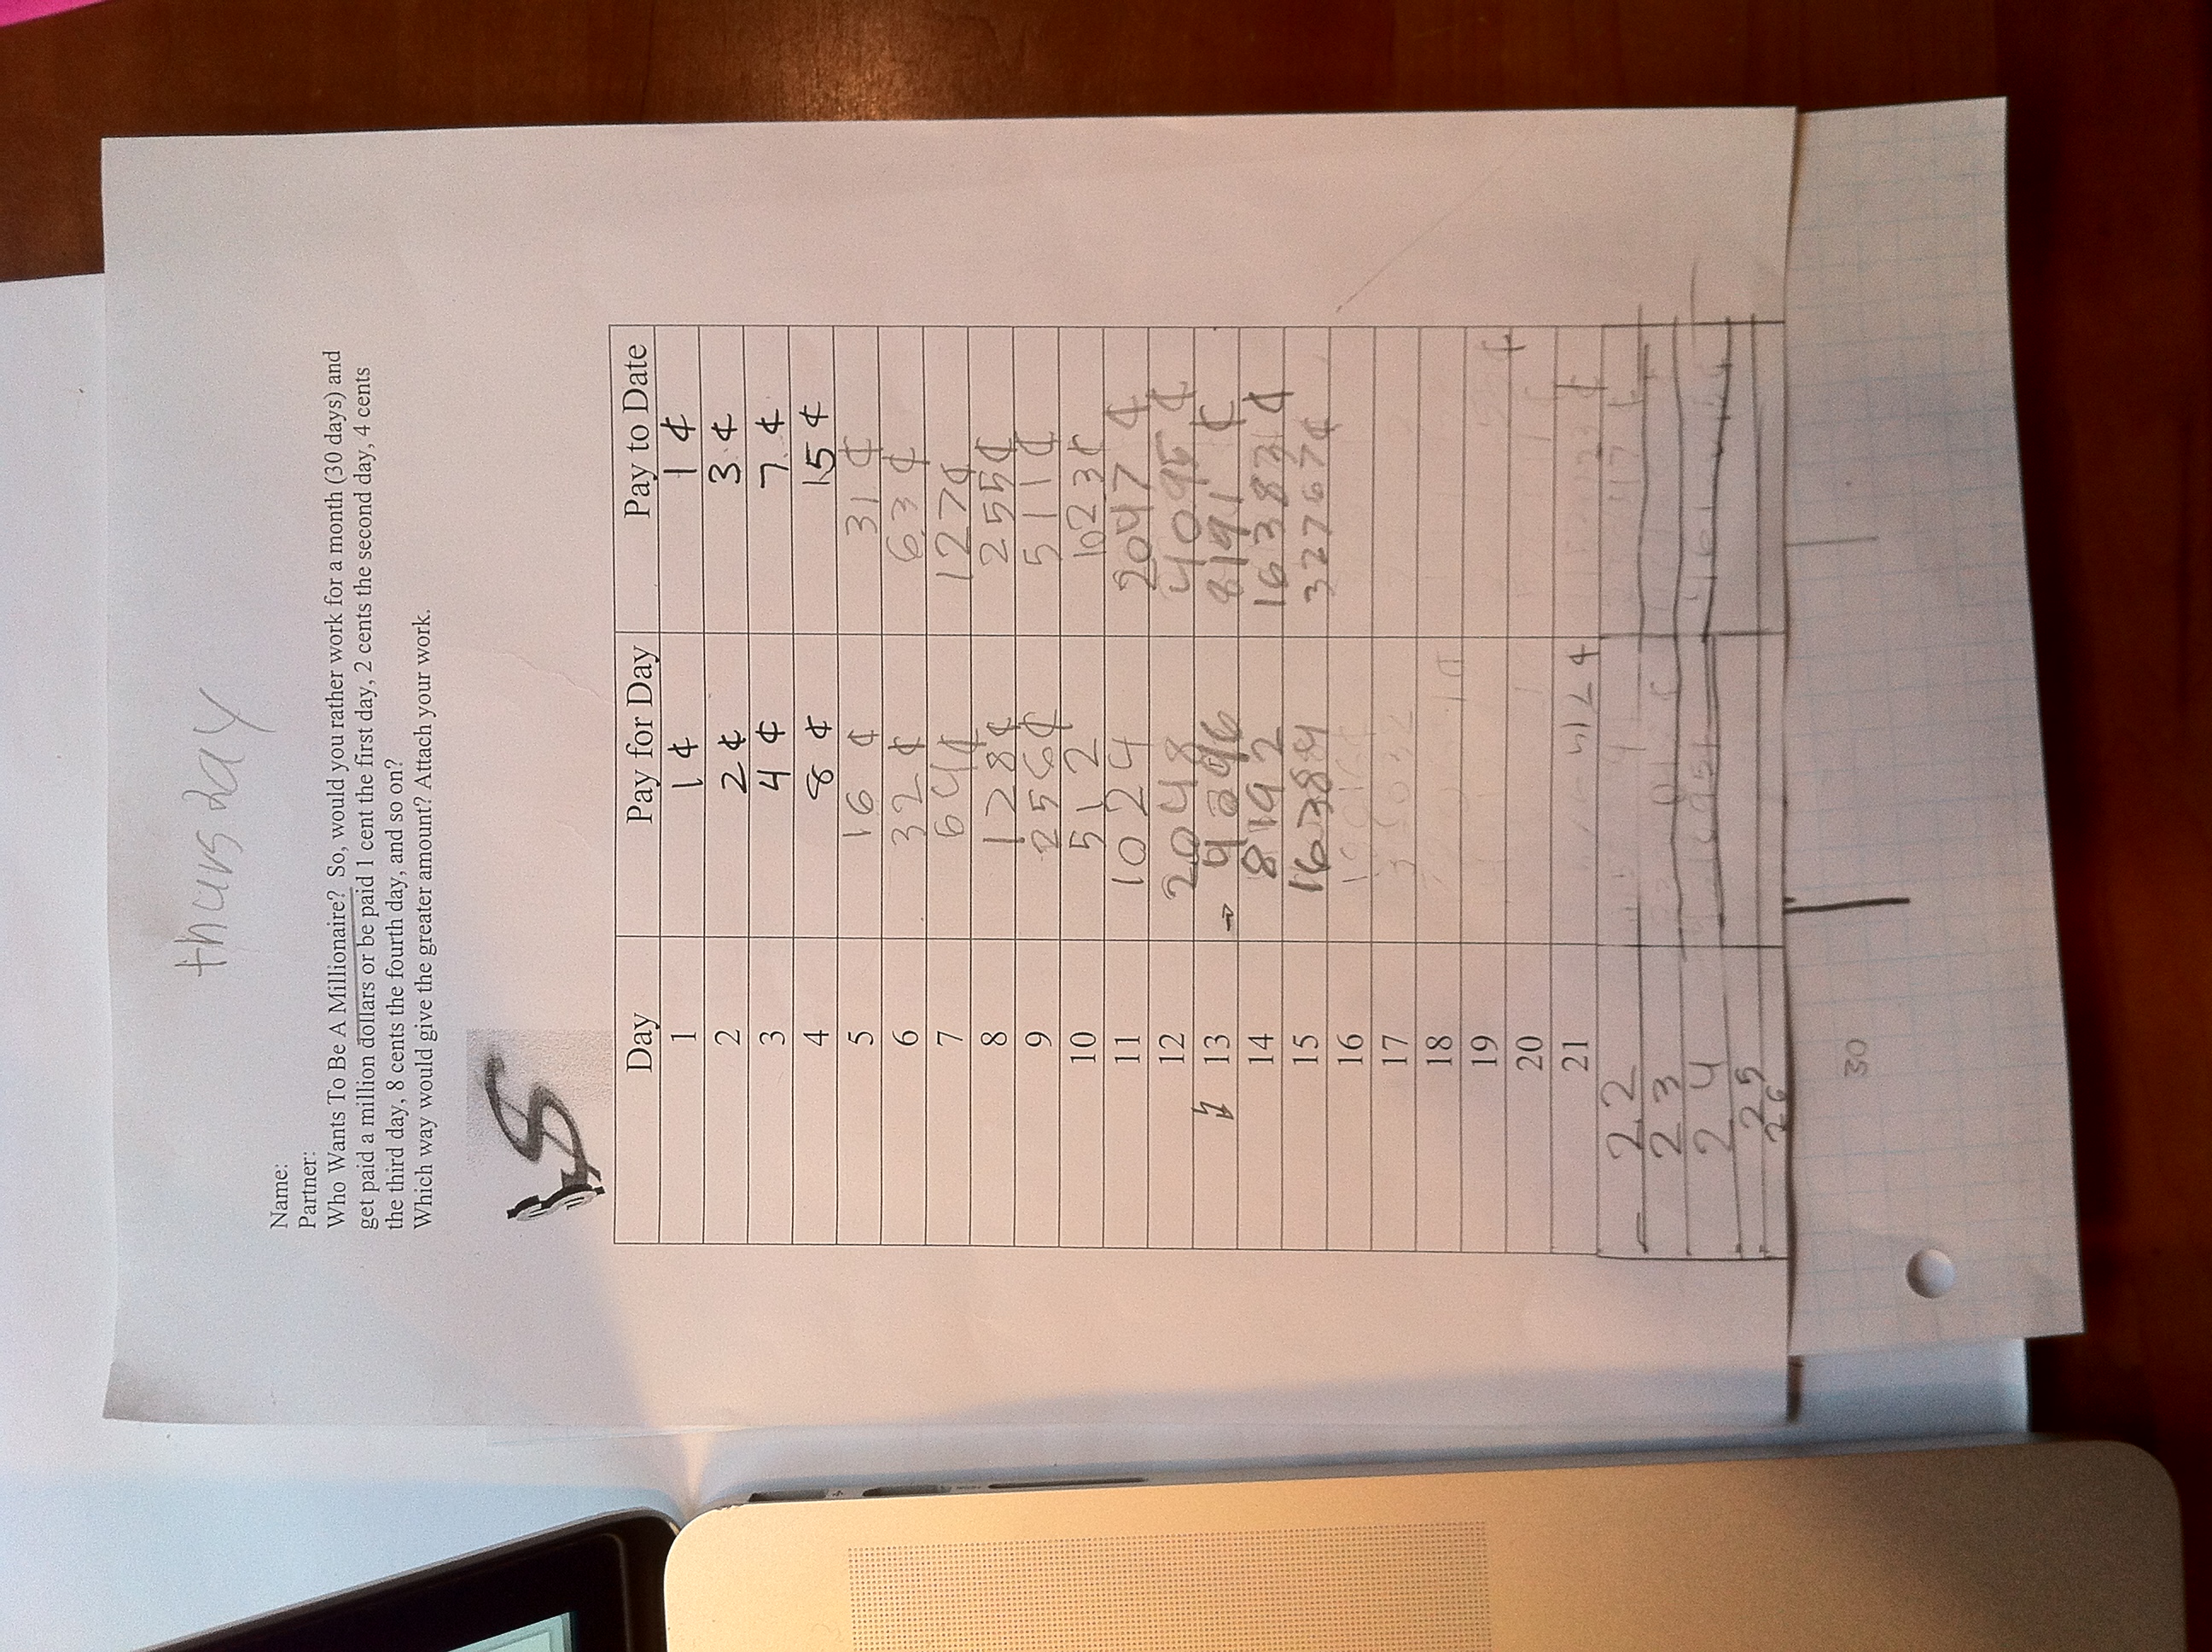 thursday
Name:
Partner:
Who Wants To Be A Millionaire? So, would you rather work for a month (30 days) and
get paid a million dollars or be paid 1 cent the first day, 2 cents the second day, 4 cents
the third day, 8 cents the fourth day, and so on?
Which way would give the greater amount? Attach your work.
Day Pay for Day Pay to Date
1 1 ¢ 1 ¢
2 2 ¢ 3 ¢
3 4 ¢ 7 ¢
4 8 ¢ 15 ¢
5 16 ¢ 31 ¢
6 32 ¢ 63 ¢
7 64¢ 127¢
8 128¢ 255¢
9 256¢ 511¢
10 512 1023¢
11 1024 2047 ¢
12 2048 4095 ¢
13 4096 8191 ¢
14 8192 16383 ¢
15 16384 32767¢
16
17
18
19
20
21
22
23
24
25
26
30